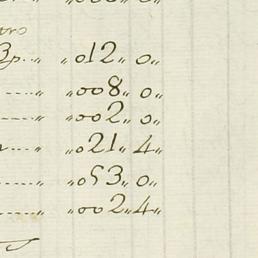 tro
3p.. „ 012„ 0„
---- „ 008„ 0„
---- „ 002„ 0„
---- „ 021„ 4„
---- „ 053„ 0„
---- „ 002„ 4„